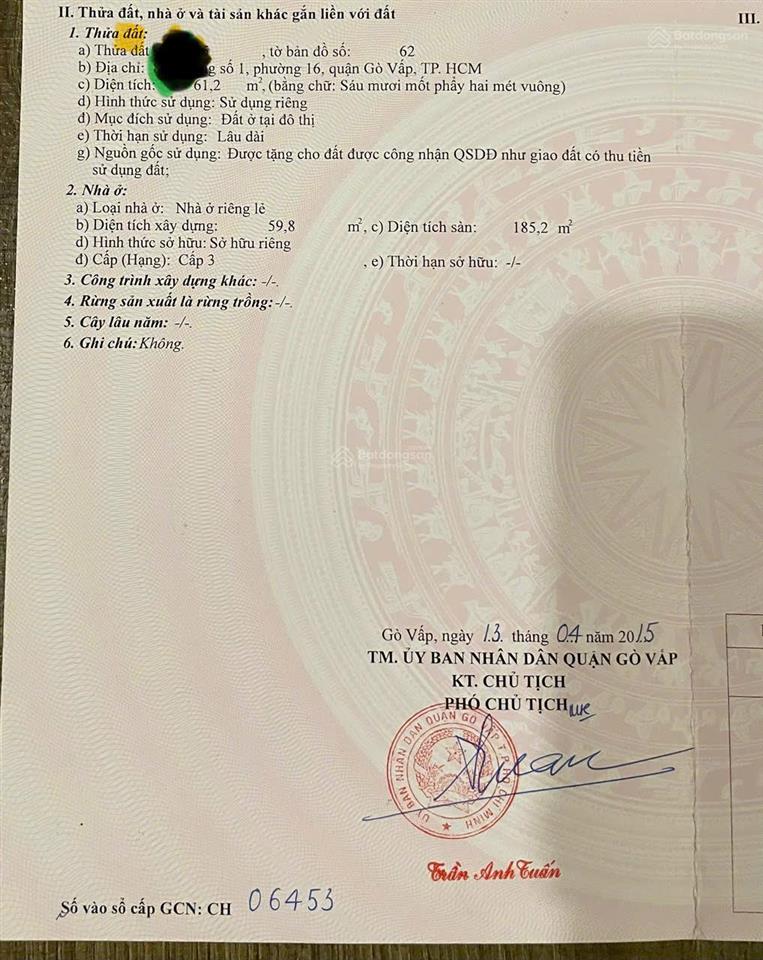 II. Thửa đất, nhà ở và tài sản khác gắn liền với đất
III.
1. Thửa đất:
a) Thửa đất , tờ bản đồ số: 62
b) Địa chỉ: số 1, phường 16, quận Gò Vấp, TP. HCM
c) Diện tích: 61,2 m², (bằng chữ: Sáu mươi mốt phẩy hai mét vuông)
d) Hình thức sử dụng: Sử dụng riêng
đ) Mục đích sử dụng: Đất ở tại đô thị
e) Thời hạn sử dụng: Lâu dài
g) Nguồn gốc sử dụng: Được tặng cho đất được công nhận QSDĐ như giao đất có thu tiền
sử dụng đất;
2. Nhà ở:
a) Loại nhà ở: Nhà ở riêng lẻ
b) Diện tích xây dựng: 59,8 m², c) Diện tích sàn: 185,2 m²
d) Hình thức sở hữu: Sở hữu riêng
đ) Cấp (Hạng): Cấp 3 , e) Thời hạn sở hữu: -/-
3. Công trình xây dựng khác: -/-.
4. Rừng sản xuất là rừng trồng: -/-.
5. Cây lâu năm: -/-.
6. Ghi chú: Không.
Batdongsan
Batdongsan
Gò Vấp, ngày 13. tháng 04 năm 2015
TM. ỦY BAN NHÂN DÂN QUẬN GÒ VẤP
KT. CHỦ TỊCH
PHÓ CHỦ TỊCH
ỦY BAN NHÂN DÂN QUẬN GÒ VẤP T.P HỒ CHÍ MINH
Trần Anh Tuấn
Số vào sổ cấp GCN: CH 06453